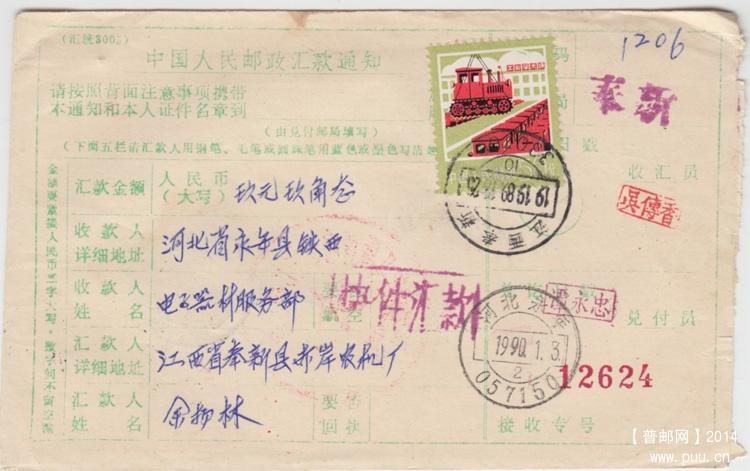 (汇统300
1206
中国人民邮政汇款通知
请按照背面注意事项携带
本通知和本人证件名章到
奉新
(由兑付邮局填写)
(下面五栏请汇款人用钢笔、毛笔或圆珠笔用蓝色或墨色写清楚
汇款金额
人民币
(大写)
玖元玖角叁
收汇员
吴傅香
江西奉新
收款人
详细地址
河北省永年县铁西
收款人
姓名
电子器材服务部
快件汇款
永忠
兑付员
汇款人
详细地址
江西省奉新县赤岸农机厂
河北永年
1990.1.3
2
057150
12624
汇款人
姓名
余扬林
要否
回执
接收专号
【普邮网】2014
www.puu.cn